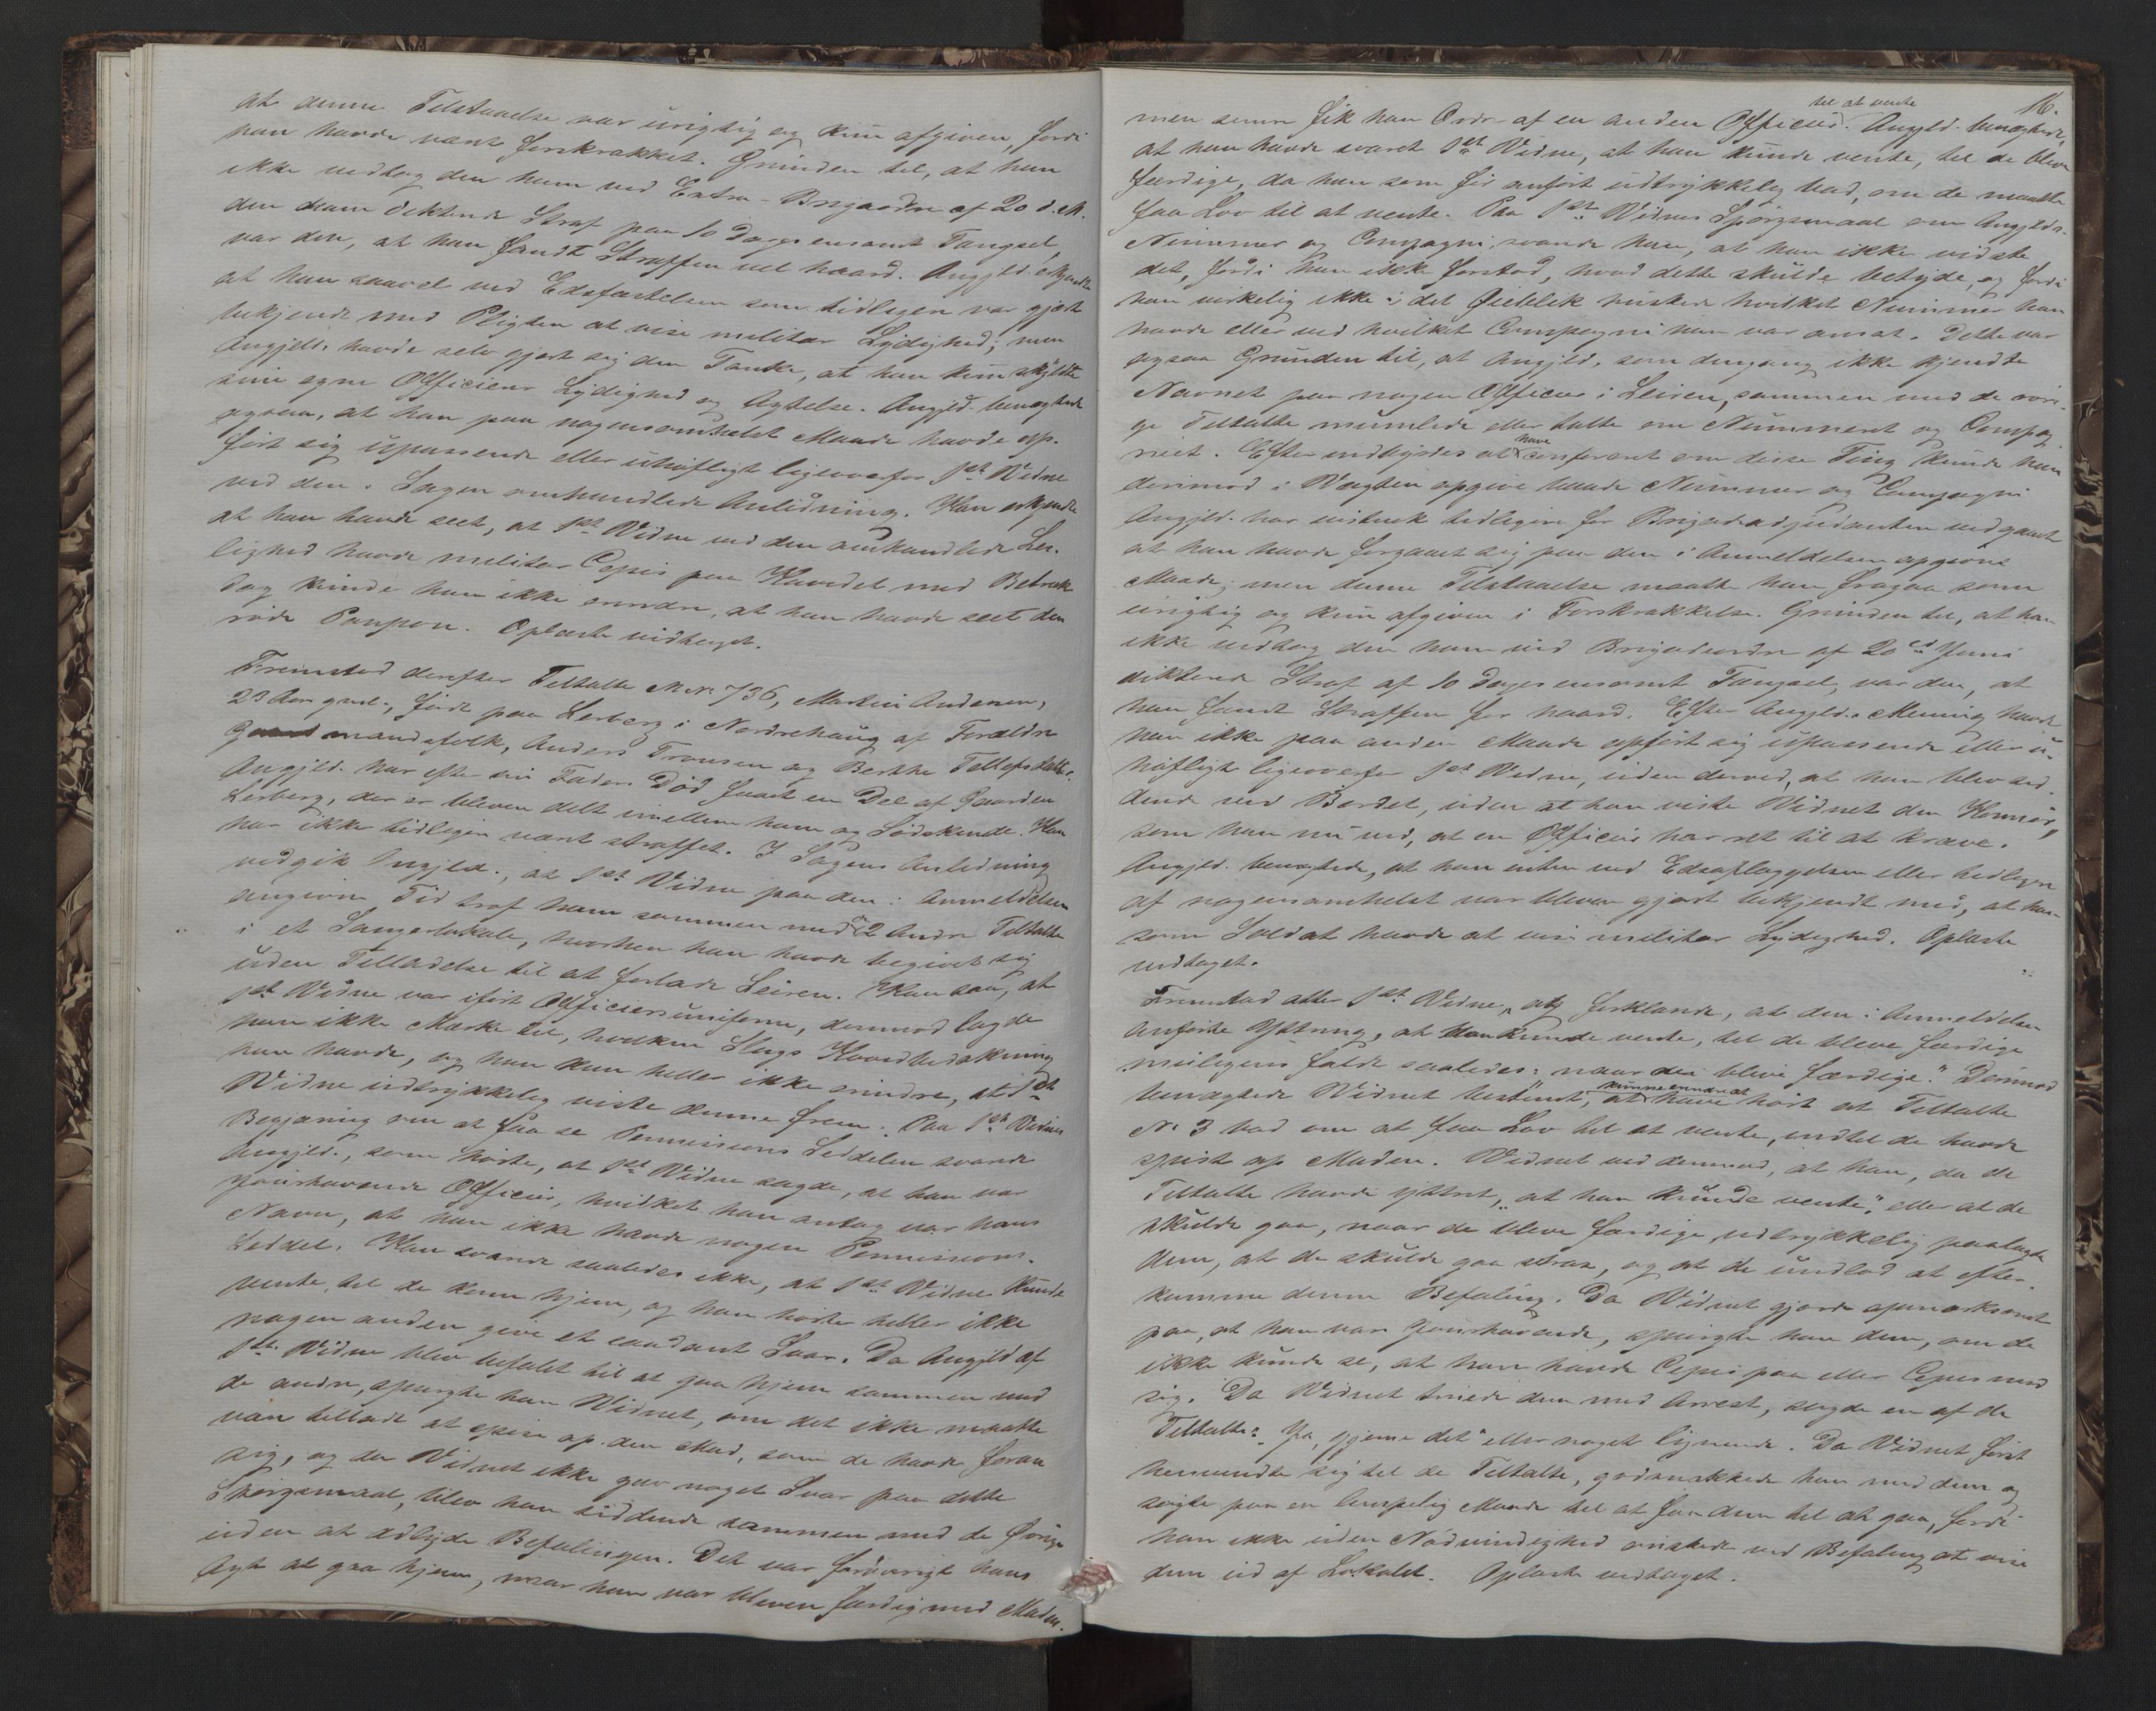 at denne Tilstaaelse var urigtig og kun afgiven, fordi
han havde været forskrækket. Grunden til, at han
ikke vedtog den ham ved Extra-Brigaordre af 20 d. M.
den ham dikterede Straf paa 10 Dages ensomt Fængsel,
var den, at han fandt Straffen vel haard. Angjeld. erkjendte
at han saavel ved Edsfæstelsen som tidligere var gjort
bekjendt med Pligten at vise militær Lydighed; men
Angjeld. havde selv gjort sig den Tanke, at han kun skyldte
sine egne Officierer Lydighed og Agtelse. Angjeld. benægtede
ogsaa, at han paa nogensomhelst Maade havde op-
ført sig upassende eller uhøfligt ligeoverfor 1ste Vidne
ved den i Sagen omhandlede Anledning. Han erkjendte
at han havde seet, at 1ste Vidne ved den omhandlede Lei-
lighed havde militær Cepis paa Hovedet med Betræk
dog kunde han ikke erindre, at han havde seet den
røde Pompon. Oplæste vedtaget.
Fremstod derefter Tiltalte M. No 736, Martin Andersen,
23 Aar gml., født paa Lerberg i Nordrehaug af Forældre
Gaardmandsfolk, Anders Tronsen og Berthe Tollefsdatter.
Angjeld. har efter sin Faders Død faaet en Del af Gaarden
Lerberg, der er bleven delt imellem ham og Sødskende. Han
har ikke tidligere været straffet. I Sagens Anledning
vedgik Angjeld., at 1ste Vidne paa den i Anmeldelsen
angivne Tid traf ham sammen med 2 Andre Tiltalte
i et Sangerlokale, hvorhen han havde begivet sig
uden Tilladelse til at forlade Leiren. Han saa, at
1ste Vidne var iført Officiersuniform, dermod lagde
han ikke Mærke til, hvilken Slags Hovedbedækning
han havde, og han kan heller ikke erindre, at 1ste
Vidne udtrykkelig viste denne frem. Paa 1ste Vidnes
Begjæring om at faa se Permissions Seddelen svarede
Angjeld., som hørte, at 1ste Vidne sagde, at han var
jourhavende Officier, hvilket han antog var hans
Navn, at han ikke havde nogen Permissions-
Seddel. Han svarede saaledes ikke, at 1ste Vidne kunde
vente, til de kom hjem, og han hørte heller ikke
nogen anden give et saadant Svar. Da Angjeld af
1ste Vidne blev befalet til at gaa hjem sammen med
de andre, spurgte han Vidnet, om det ikke maatte
være tilladt at spise op den Mad, som de havde foran
sig, og da Vidnet ikke gav noget Svar paa dette
Spørgsmaal, blev han siddende sammen med de Øvrige
uden at adlyde Befalingen. Det var forøvrigt hans
Agt at gaa hjem, naar han var bleven færdig med Maden.
16.
til at vente
men senere fik han Ordre af en anden Officier. Angjeld. benægtede,
at han havde svaret 1ste Vidne, at han kunde vente, til de bleve
færdige, da han som før anført udtrykkelig bad, om de maatte
faa Lov til at vente. Paa 1ste Vidnes Spørgsmaal om Angjelds.
Nummer og Compagni, svarede han, at han ikke vidste
det, fordi han ikke forstod, hvad dette skulde betyde, og fordi
han virkelig ikke i det Øieblik huskede hvilket Nummer han
havde eller ved hvilket Compagni han var ansat. Dette var
ogsaa Grunden til, at Angjeld. som dengang ikke kjendte
Navnet paa nogen Officier i Leiren, sammen med de øvri-
ge Tiltalte mumlede eller talte om Nummeret og Compag-
niet. Efter indbyrdes at have confereret om disse Ting kunde han
derimod i Vagten opgive baade Nummer og Compagni
Angjeld. har vistnok tidligere for Brigadeadjudanten vedgaaet
at han havde forgaaet sig paa den i Anmeldelsen opgivne
Maade; men denne Tilstaaelse maatte han fragaa som
urigtig og kun afgiven i Forskrækkelse. Grunden til, at han
ikke vedtog den ham ved Brigadeordre af 20de Juni
dikterede Straf af 10 Dages ensomt Fængsel, var den, at
han fandt Straffen for haard. Efter Angjelds. Mening havde
han ikke paa anden Maade opført sig upassende eller u-
høfligt ligeoverfor 1ste Vidne, uden derved, at han blev sid-
dende ved Bordet, uden at han viste Vidnet den Honnør,
som han nu ved, at en Officier har ret til at kræve.
Angjeld. benægtede, at han enten ved Edsaflæggelsen eller tidligere
af nogensomhelst var bleven gjort bekjendt med, at han
som Soldat havde at vise militær Lydighed. Oplæste
vedtaget.
Fremstod atter 1ste Vidne, og forklarede, at den i Anmeldelsen
anførte Yttring, at han kunde vente, til de bleve færdige
muligens faldt saaledes: "naar de bleve færdige." Derimod
benægtede Vidnet bestemt, at kunne erindre at have hørt at Tiltalte
No 3 bad om at faa Lov til at vente, indtil de havde
spist op Maden. Vidnet ved derimod, at han, da de
Tiltalte havde yttret, "at han kunde vente", eller at de
skulde gaa, naar de bleve færdige, udtrykkelig paalagde
dem, at de skulde gaa strax, og at de undlod at efter-
komme denne Befaling. Da Vidnet gjorde opmærksomt
paa, at han var jourhavende, spurgte han dem, om de
ikke kunde se, at han havde Cepis paa eller Cepis med
sig. Da Vidnet truede dem med Arrest, sagde en af de
Tiltalte: "Ja, gjerne det" eller noget lignende. Da Vidnet først
henvendte sig til de Tiltalte, godsnakkede han med dem og
søgte paa en lempelig Maade til at faa dem til at gaa, fordi
han ikke uden Nødvendighed ønskede ved Befaling at vise
dem ud af Lokalet. Oplæste vedtaget.